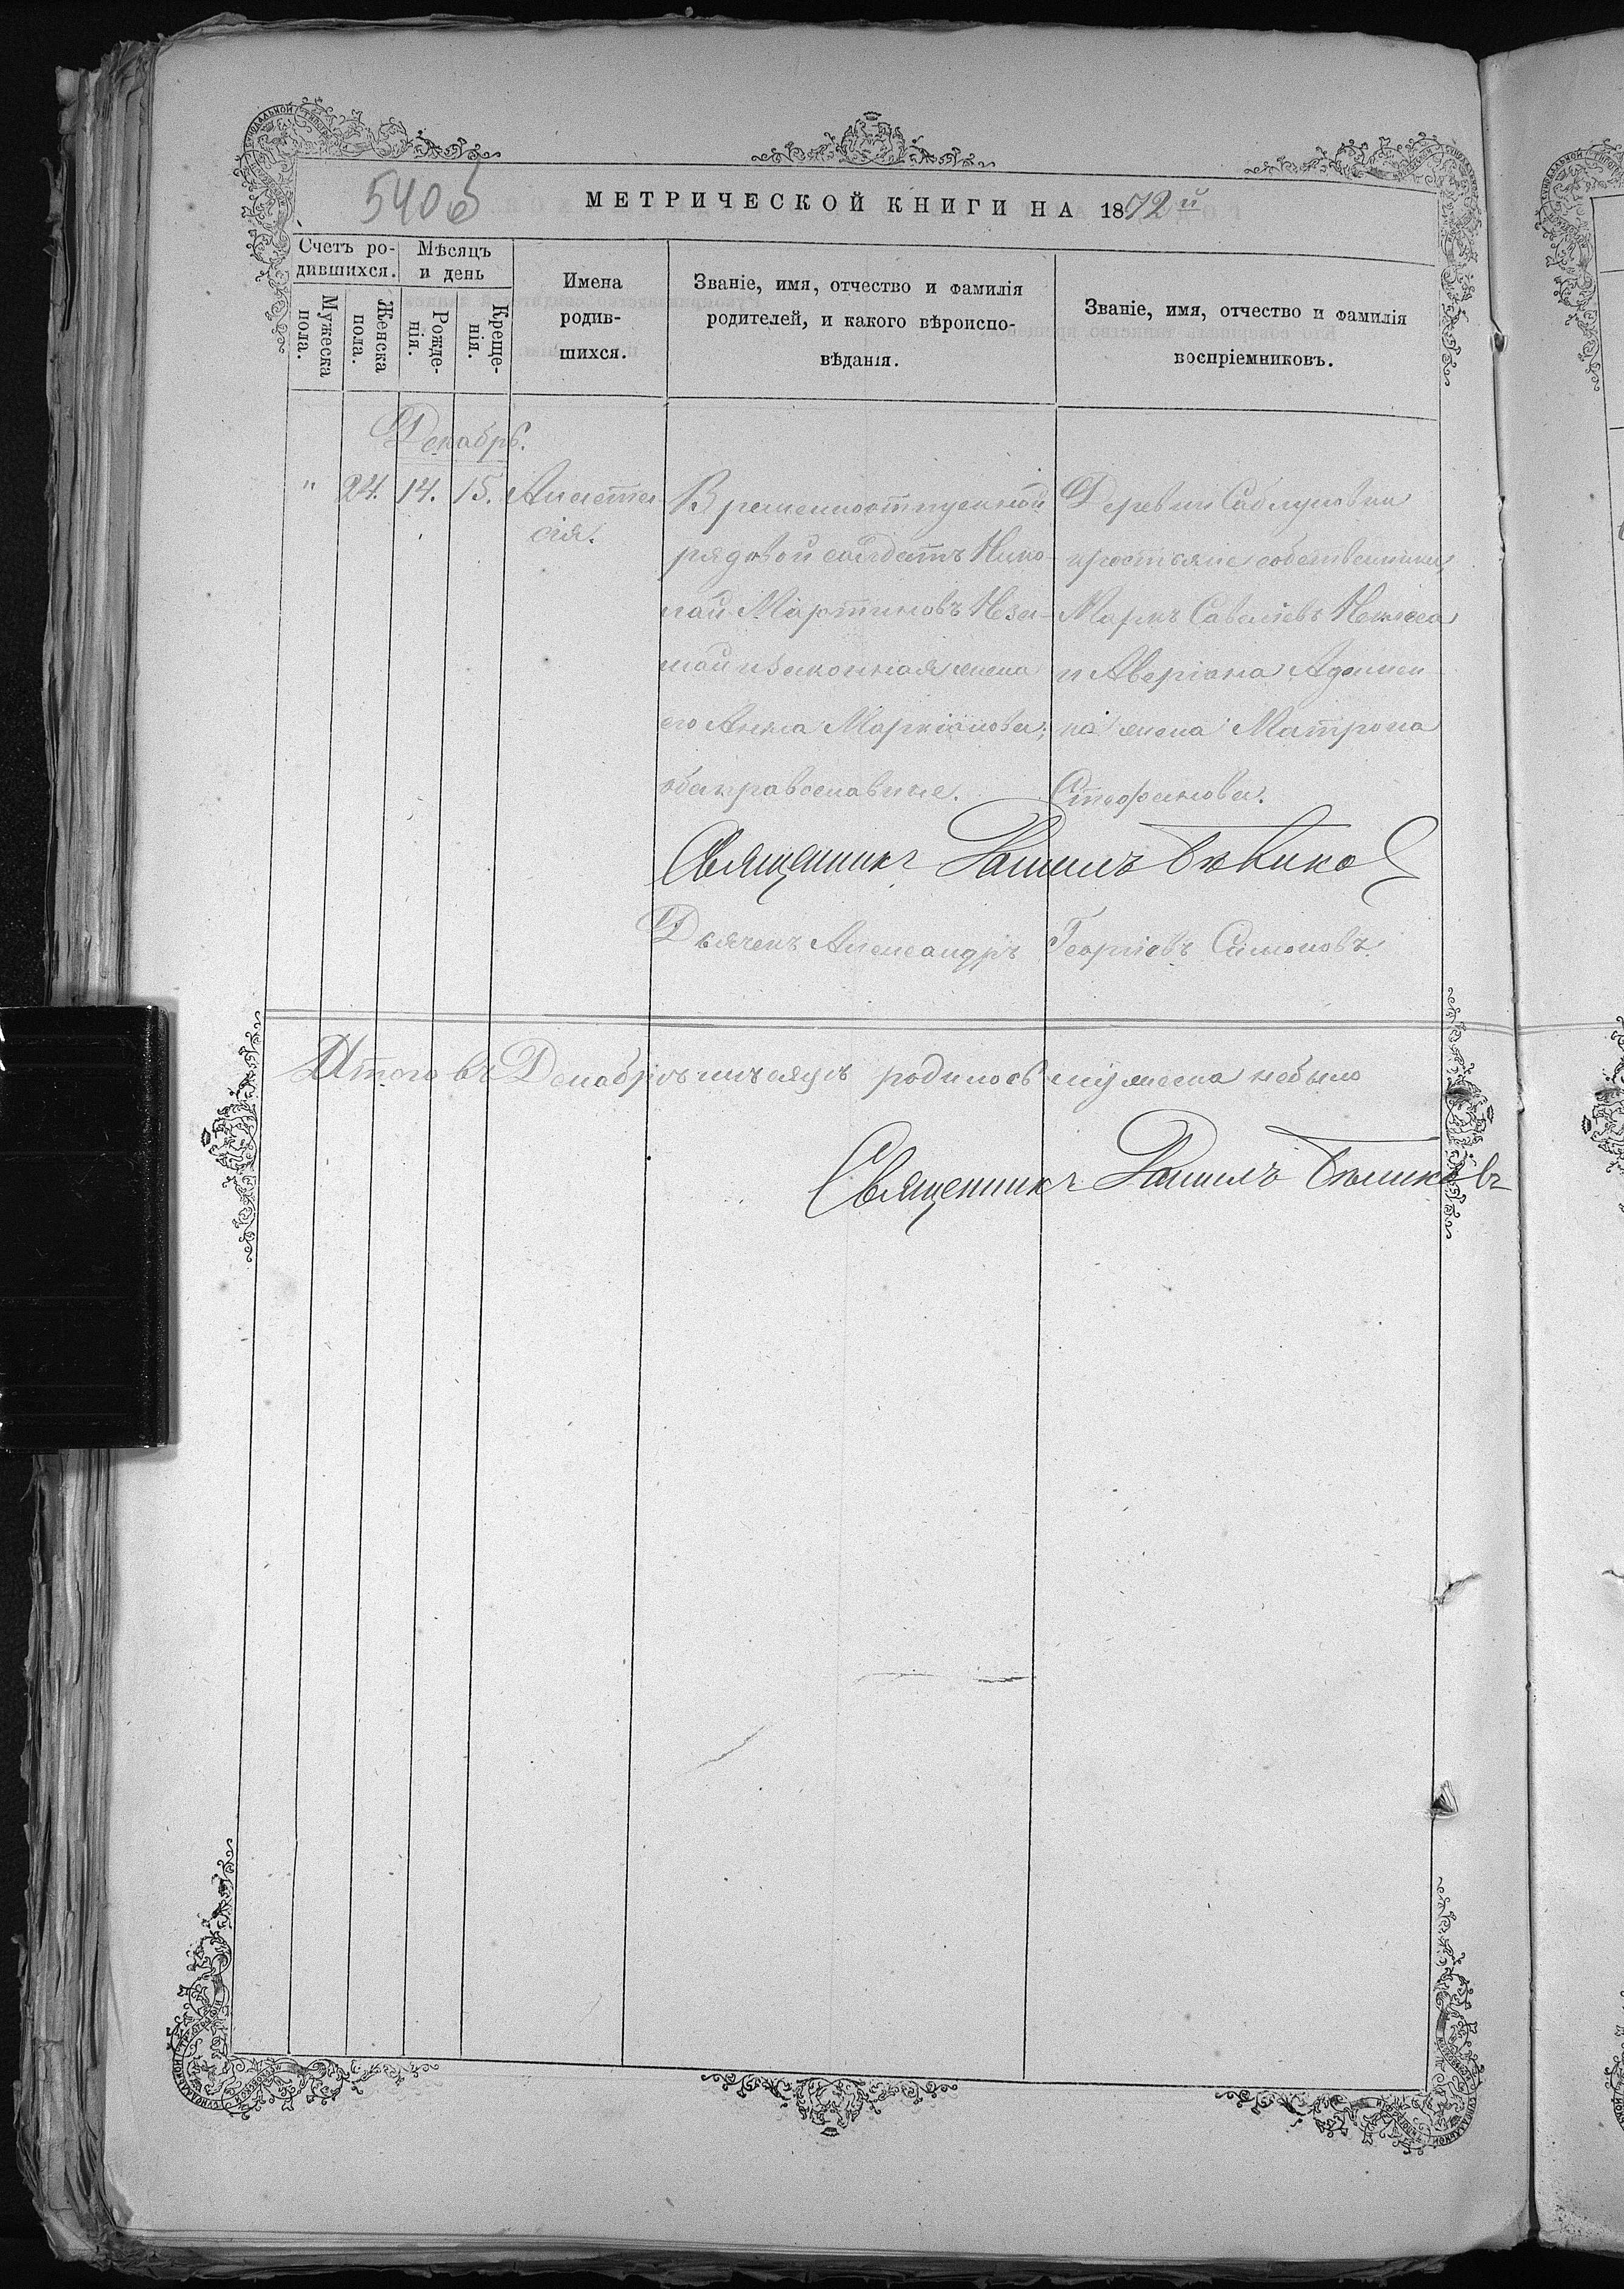 540б
МЕТРИЧЕСКОЙ КНИГИ НА 1872й
Счетъ ро-
дившихся.
Мѣсяцъ
и день
Мужеска
пола.
Женска
пола.
Рожде-
нія.
Креще-
нія.
Имена
родив-
шихся.
Званіе, имя, отчество и фамилія
родителей, и какого вѣроиспо-
вѣданія.
Званіе, имя, отчество и фамилія
воспріемниковъ.
Декабрь.
" 24. 14. 15.
Анаста
сія.
Временноотпускной
рядовой солдатъ Нико-
лай Мартиновъ
и законная жена
его Анна Маркіанова;
оба православные.
Деревни
крестьяне собственники
Маркъ Савелiевъ
и Аверіана
жена Матрона
Стефанова.
Священникъ Даніилъ Бѣлико
Дьячекъ Александръ Георгіевъ Симоновъ.
Итого въ Декабрѣ мѣсяцѣ родилось мужеска небыло
Священникъ Даніилъ Бѣликовъ